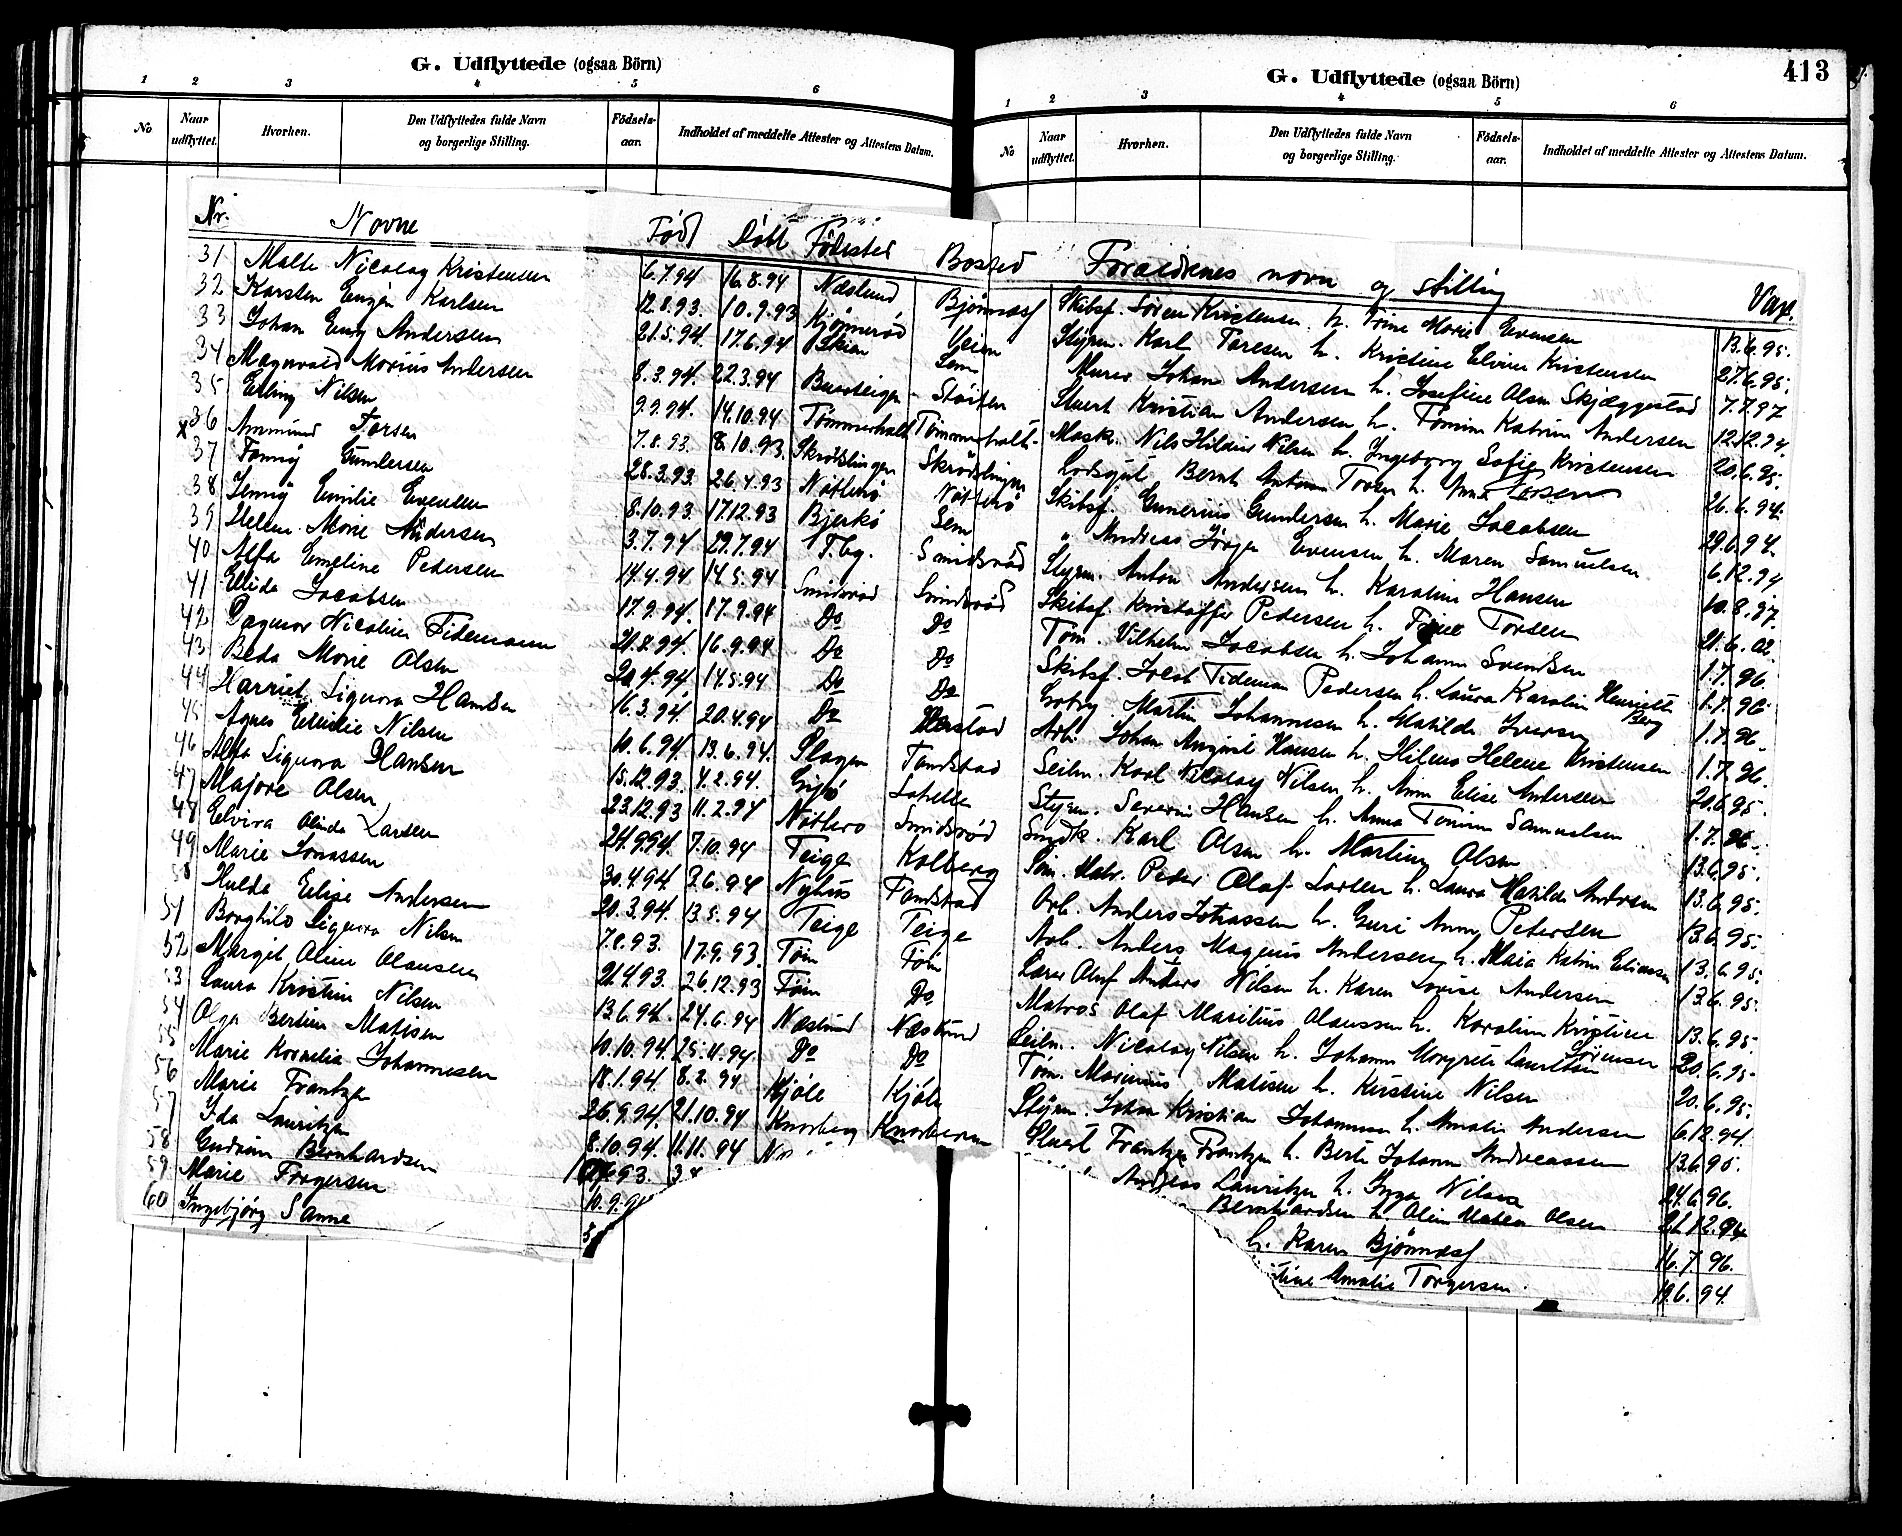 G. Udflyttede (ogsaa Börn)
1 2 3 4 5 6
No Naar udflyttet. Hvorhen. Den Udflyttedes fulde Navn og borgerlige Stilling. Födsels-aar. Indholdet af meddelte Attester og Attestens Datum.
G. Udflyttede (ogsaa Börn) 413
1 2 3 4 5 6
No Naar udflyttet. Hvorhen. Den Udflyttedes fulde Navn og borgerlige Stilling. Födsels-aar. Indholdet af meddelte Attester og Attestens Datum.
Nr. Navne Född Döbt Födested Bosted Foraeldrenes navn og stilling Vax.
31 Malte Nicolay Kristensen 6.7.94 16.8.94 Næslund Bjönnæsf Skibsf. Sören Kristensen h. Trine Marie Evensen 13.6.95.
32 Karsten Eugén Karlsen 12.8.93. 10.9.93 Kjönnerød Veien Styrm. Karl Taresen h. Kristine Elvine Kristensen 27.6.95.
33 Johan Eury Andersen 21.5.94. 17.6.94 Skien Sem Murer Johan Andersen h. Josefine Olsen Skjæggestad 7.7.97
34 Magnvald Marius Andersen 8.3.94. 22.3.94 Buerteigen Stöiten Stuert Kristian Andersen h. Tomine Katrine Andersen 12.12.94.
35 Erling Nilsen 9.9.94. 14.10.94 Tömmerholt Tömmerholt Mask. Nils Hildus Nilsen h. Ingeborg Sofie Kristensen 20.6.95.
x 36 Ammund Torsen 7.8.93. 8.10.93. Skrödslingen Skrödslingen Lodsgut Bernt Anton Toren h. Anna Larsen 26.6.94.
37 Fanny Gundersen 28.3.93. 26.4.93 Nötterö Nötterö Skibsf. Gunerius Gundersen h. Marie Jacobsen 29.6.94.
38 Jenny Emilie Evensen 8.10.93. 17.12.93 Bjerkö Sem " Andreas Jörgen Evensen h. Maren Samuelsen 6.12.94
39 Helene Marie Andersen 3.7.94 29.7.94 Tbg. Smidsröd Styrm. Anton Andersen h. Karoline Hansen 10.8.97.
40 Alfa Emeline Pedersen 14.4.94 14.5.94 Smidsröd Smidsröd Skibsf. Kristoffer Pedersen h. Trine Torsen 21.6.02.
41 Elida Jacobsen 17.9.94. 17.9.94 Do Do Töm. Vilhelm Jacobsen h. Johanne Svendsen 1.7.96.
42 Dagmar Nicoline Tidemann 21.8.94. 16.9.94 Do Do Skibsf. Jacob Tideman Pedersen h. Laura Karoline Henriette Berg 1.7.96
43 Beda Marie Olsen 20.4.94. 14.5.94 Do Do Martin Johannesen h. Matilde Iversen 1.7.96.
44 Harriet Signora Hansen 16.3.94. 20.4.94 Do Arb. Johan August Hansen h. Helene Kristensen 1.7.96.
45 Agnes Emilie Nilsen 10.6.94. 13.6.94. Slagen Tandstad Seilm. Karl Nicolay Nilsen h. Anne Elise Andersen 20.6.95.
46 Alfa Signora Hansen 15.12.93. 4.2.94. Styrm. Severin Hansen h. Anna Tomine Samuelsen 1.7.96.
47 Majore Olsen 23.12.93 11.2.94 Nötterö Smidsröd Karl Olsen h. Martine Olsen 13.6.95.
48 Elvira Olinda Larsen 24.9.94. 7.10.94 Teige Kolberg Söm. Matr. Peder Olaf Larsen h. Laura Matilde Andersen 13.6.95.
49 Marie Jonassen 30.4.94 3.6.94 Nyhus Tandstad Arb. Anders Jonassen h. Guri Anne Petersen 13.6.95.
50 Hulda Elise Andersen 20.3.94. 13.5.94 Teige Teige Arb. Anders Magnus Andersen h. Maia Katrine Eliassen 13.6.95.
51 Borghild Signora Nilsen 7.8.93. 17.9.93. Töin Töin Lærer Oluf Anders Nilsen h. Karen Lovise Andersen 13.6.95.
52 Margit Oline Olaussen 21.4.93. 26.12.93 Töin Do Matros Olaf Marilius Olaussen h. Karoline Kristine Sörensen 13.6.95.
53 Laura Kristine Nilsen 13.6.94. 24.6.94 Næslund Næslund Seilm. Nicolay Nilsen h. Johanne Margrete Lauritsen 20.6.95.
54 Olga Bertine Matisen 10.10.94. 25.11.94. Do Do Töm. Marinius Matisen h. Kirstine Nilsen 20.6.95.
55 Marie Kornelia Johannesen 18.1.94. 8.2.94 Kjöle Kjöle Styrm. Johan Kristian Johannesen h. Amalie Andersen 6.12.94.
56 Marie Frantzen 26.9.94. 21.10.94 Knarberg Knarberg Stuert Frantz Frantzen h. Berte Johanne Andreassen 13.6.95.
57 Ida Lauritzen 8.10.94. 11.11.94 Andreas Lauritzen h. Inga Nilsen 24.6.96.
58 Gudrun Bernhardsen 93. Bernhardsen h. Oline Matea Olsen 21.12.94
59 Marie Torgersen 10.9. h. Karen Bjönnæsf 16.7.96.
60 Ingebjörg Sanne Amalie Torgersen. 19.6.94.